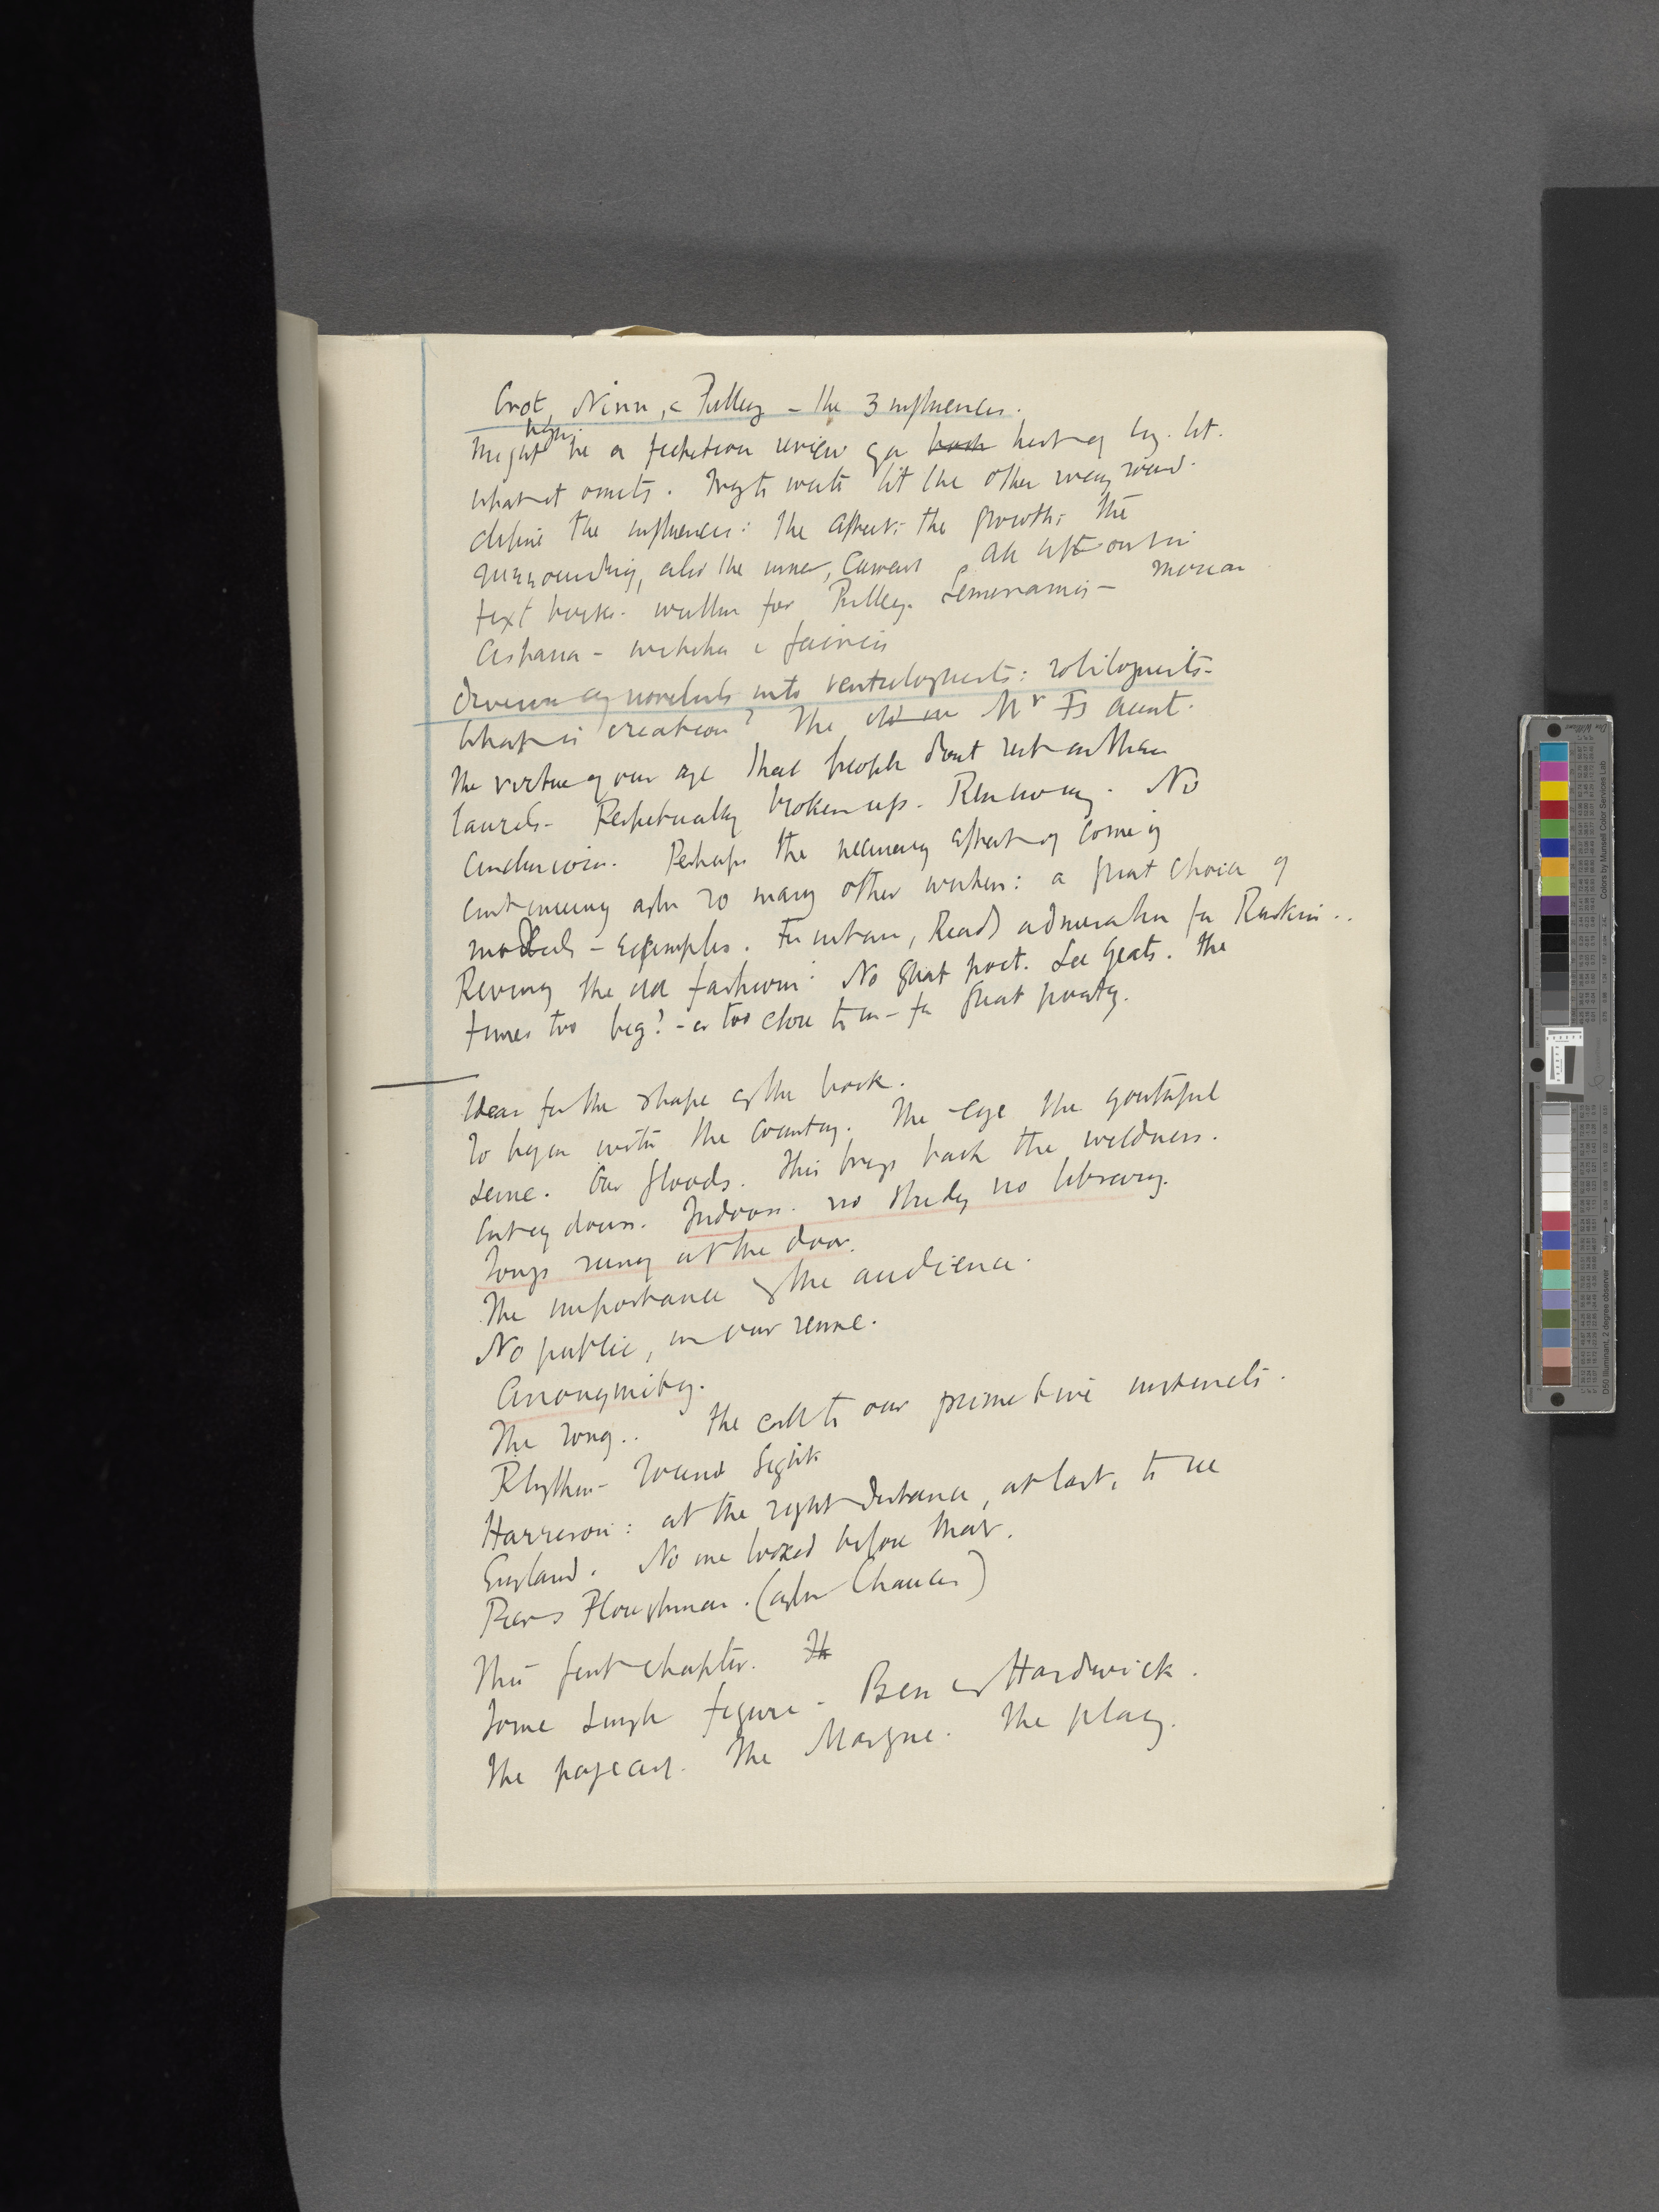 Crot, Nin, & Pulley - the 3 influences.
begin
Might be a fictitious review of a book hist of Eng. lit.
what it omits. Try to write lit the other way round.
define the influences: the effect; the growth; the
surrounding, also the inner, current all left out in
text books. written for Pulley. Semiramis - morian
- witches & fairies
Division of novelists into ventriloquists: soliloquists-
What is creation? The old in Mr Fs aunt.
The virtue of our age that people dont rest on their
laurels- Perpetually broken up. Renewing. No
conclusion. Perhaps the necessary effect of coming
continuing after so many other writers: a great choice of
models - examples. For instance, Reads admiration for Ruskin..
Reviving the old fashion: No great poet. See Yeats. The
times too big? - or too close to us - for great poetry.
Ideas for the shape of the book.
To begin with the country. The eye the youthful
sense. Our floods. This brings back the wildness.
Cut of doors. Indoors. no study no library.
Songs sung at the door.
The importance of the audience.
No public, in our sense.
Anonymity.
The song.. the call to our primitive instincts.
Rhythm - Sound Sight
Harrison: at the right distance, at last, to see
England. No one looked before that.
Piers Ploughman. (after Chaucer)
This first chapter. Th
Some single figure - Bess of Hardwick.
The pageant. The Masque. The play.